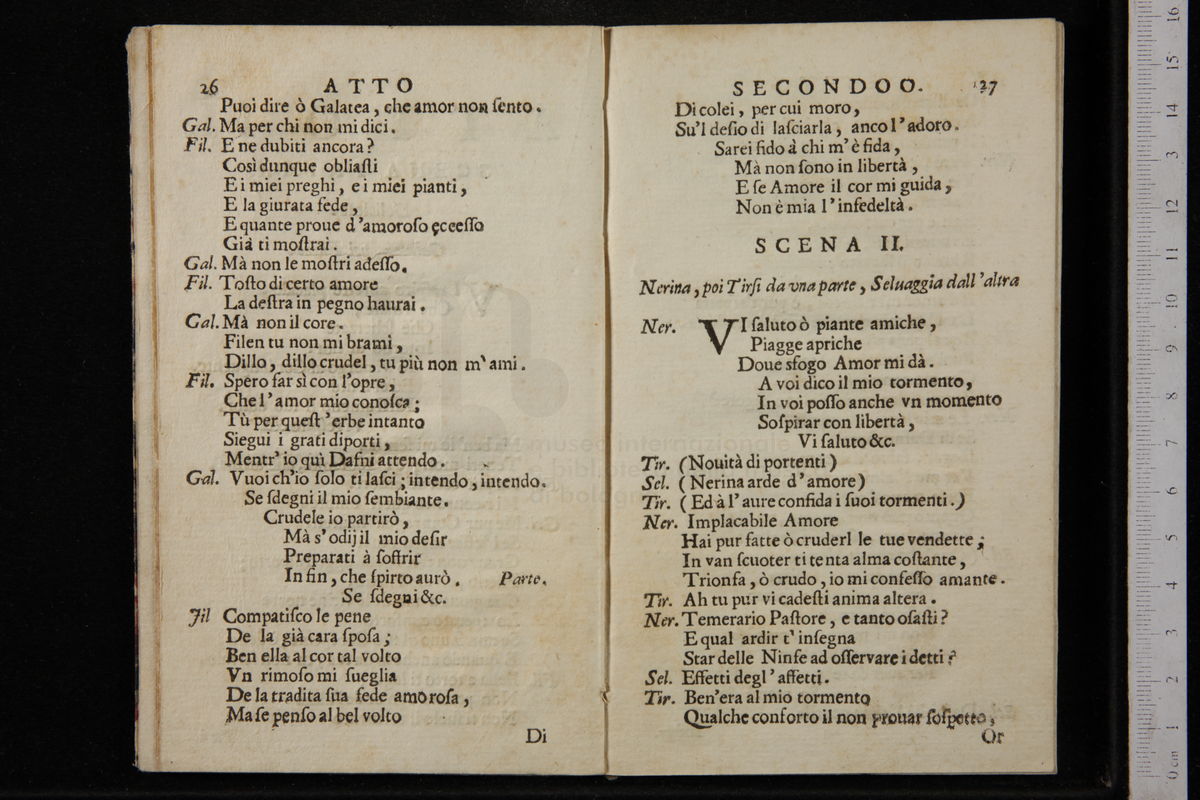 26 ATTO
Puoi dire ò Galatea, che amor non ſento.
Gal. Ma per chi non mi dici.
Fil. E ne dubiti ancora?
Così dunque obliaſti
E i miei preghi, e i miei pianti,
E la giurata fede,
E quante proue d'amoroſo ecceſſo
Già ti moſtrai.
Gal. Mà non le moſtri adeſſo.
Fil. Toſto di certo amore
La deſtra in pegno haurai.
Gal. Mà non il core.
Filen tu non mi brami,
Dillo, dillo crudel, tu più non m'ami.
Fil. Spero far sì con l'opre,
Che l'amor mio conoſca;
Tù per queſt'erbe intanto
Siegui i grati diporti,
Mentr'io quì Dafni attendo.
Gal. Vuoi ch'io ſolo ti laſci; intendo, intendo.
Se ſdegni il mio ſembiante.
Crudele io partirò,
Mà s'odij il mio deſir
Preparati à ſoffrir
In fin, che ſpirto aurò. Parte.
Se ſdegni &c.
Fil Compatiſco le pene
De la già cara ſpoſa;
Ben ella al cor tal volto
Vn rimoſo mi ſueglia
De la tradita ſua fede amoroſa,
Ma ſe penſo al bel volto
Di
SECONDOO. 27
Di colei, per cui moro,
Su'l deſio di laſciarla, anco l'adoro.
Sarei fido à chi m'è fida,
Mà non ſono in libertà,
E ſe Amore il cor mi guida,
Non è mia l'infedeltà.
SCENA II.
Nerina, poi Tirſi da vna parte, Seluaggia dall'altra
Ner. VI ſaluto ò piante amiche,
Piagge apriche
Doue sfogo Amor mi dà.
A voi dico il mio tormento,
In voi poſſo anche vn momento
Soſpirar con libertà,
Vi ſaluto &c.
Tir. (Nouità di portenti)
Sel. (Nerina arde d'amore)
Tir. (Ed à l'aure confida i ſuoi tormenti.)
Ner. Implacabile Amore
Hai pur fatte ò cruderl le tue vendette;
In van ſcuoter ti tenta alma coſtante,
Trionfa, ò crudo, io mi confeſſo amante.
Tir. Ah tu pur vi cadeſti anima altera.
Ner. Temerario Paſtore, e tanto oſaſti?
E qual ardir t'inſegna
Star delle Ninfe ad oſſervare i detti?
Sel. Effetti degl'affetti.
Tir. Ben'era al mio tormento
Qualche conforto il non prouar ſoſpetto,
Or